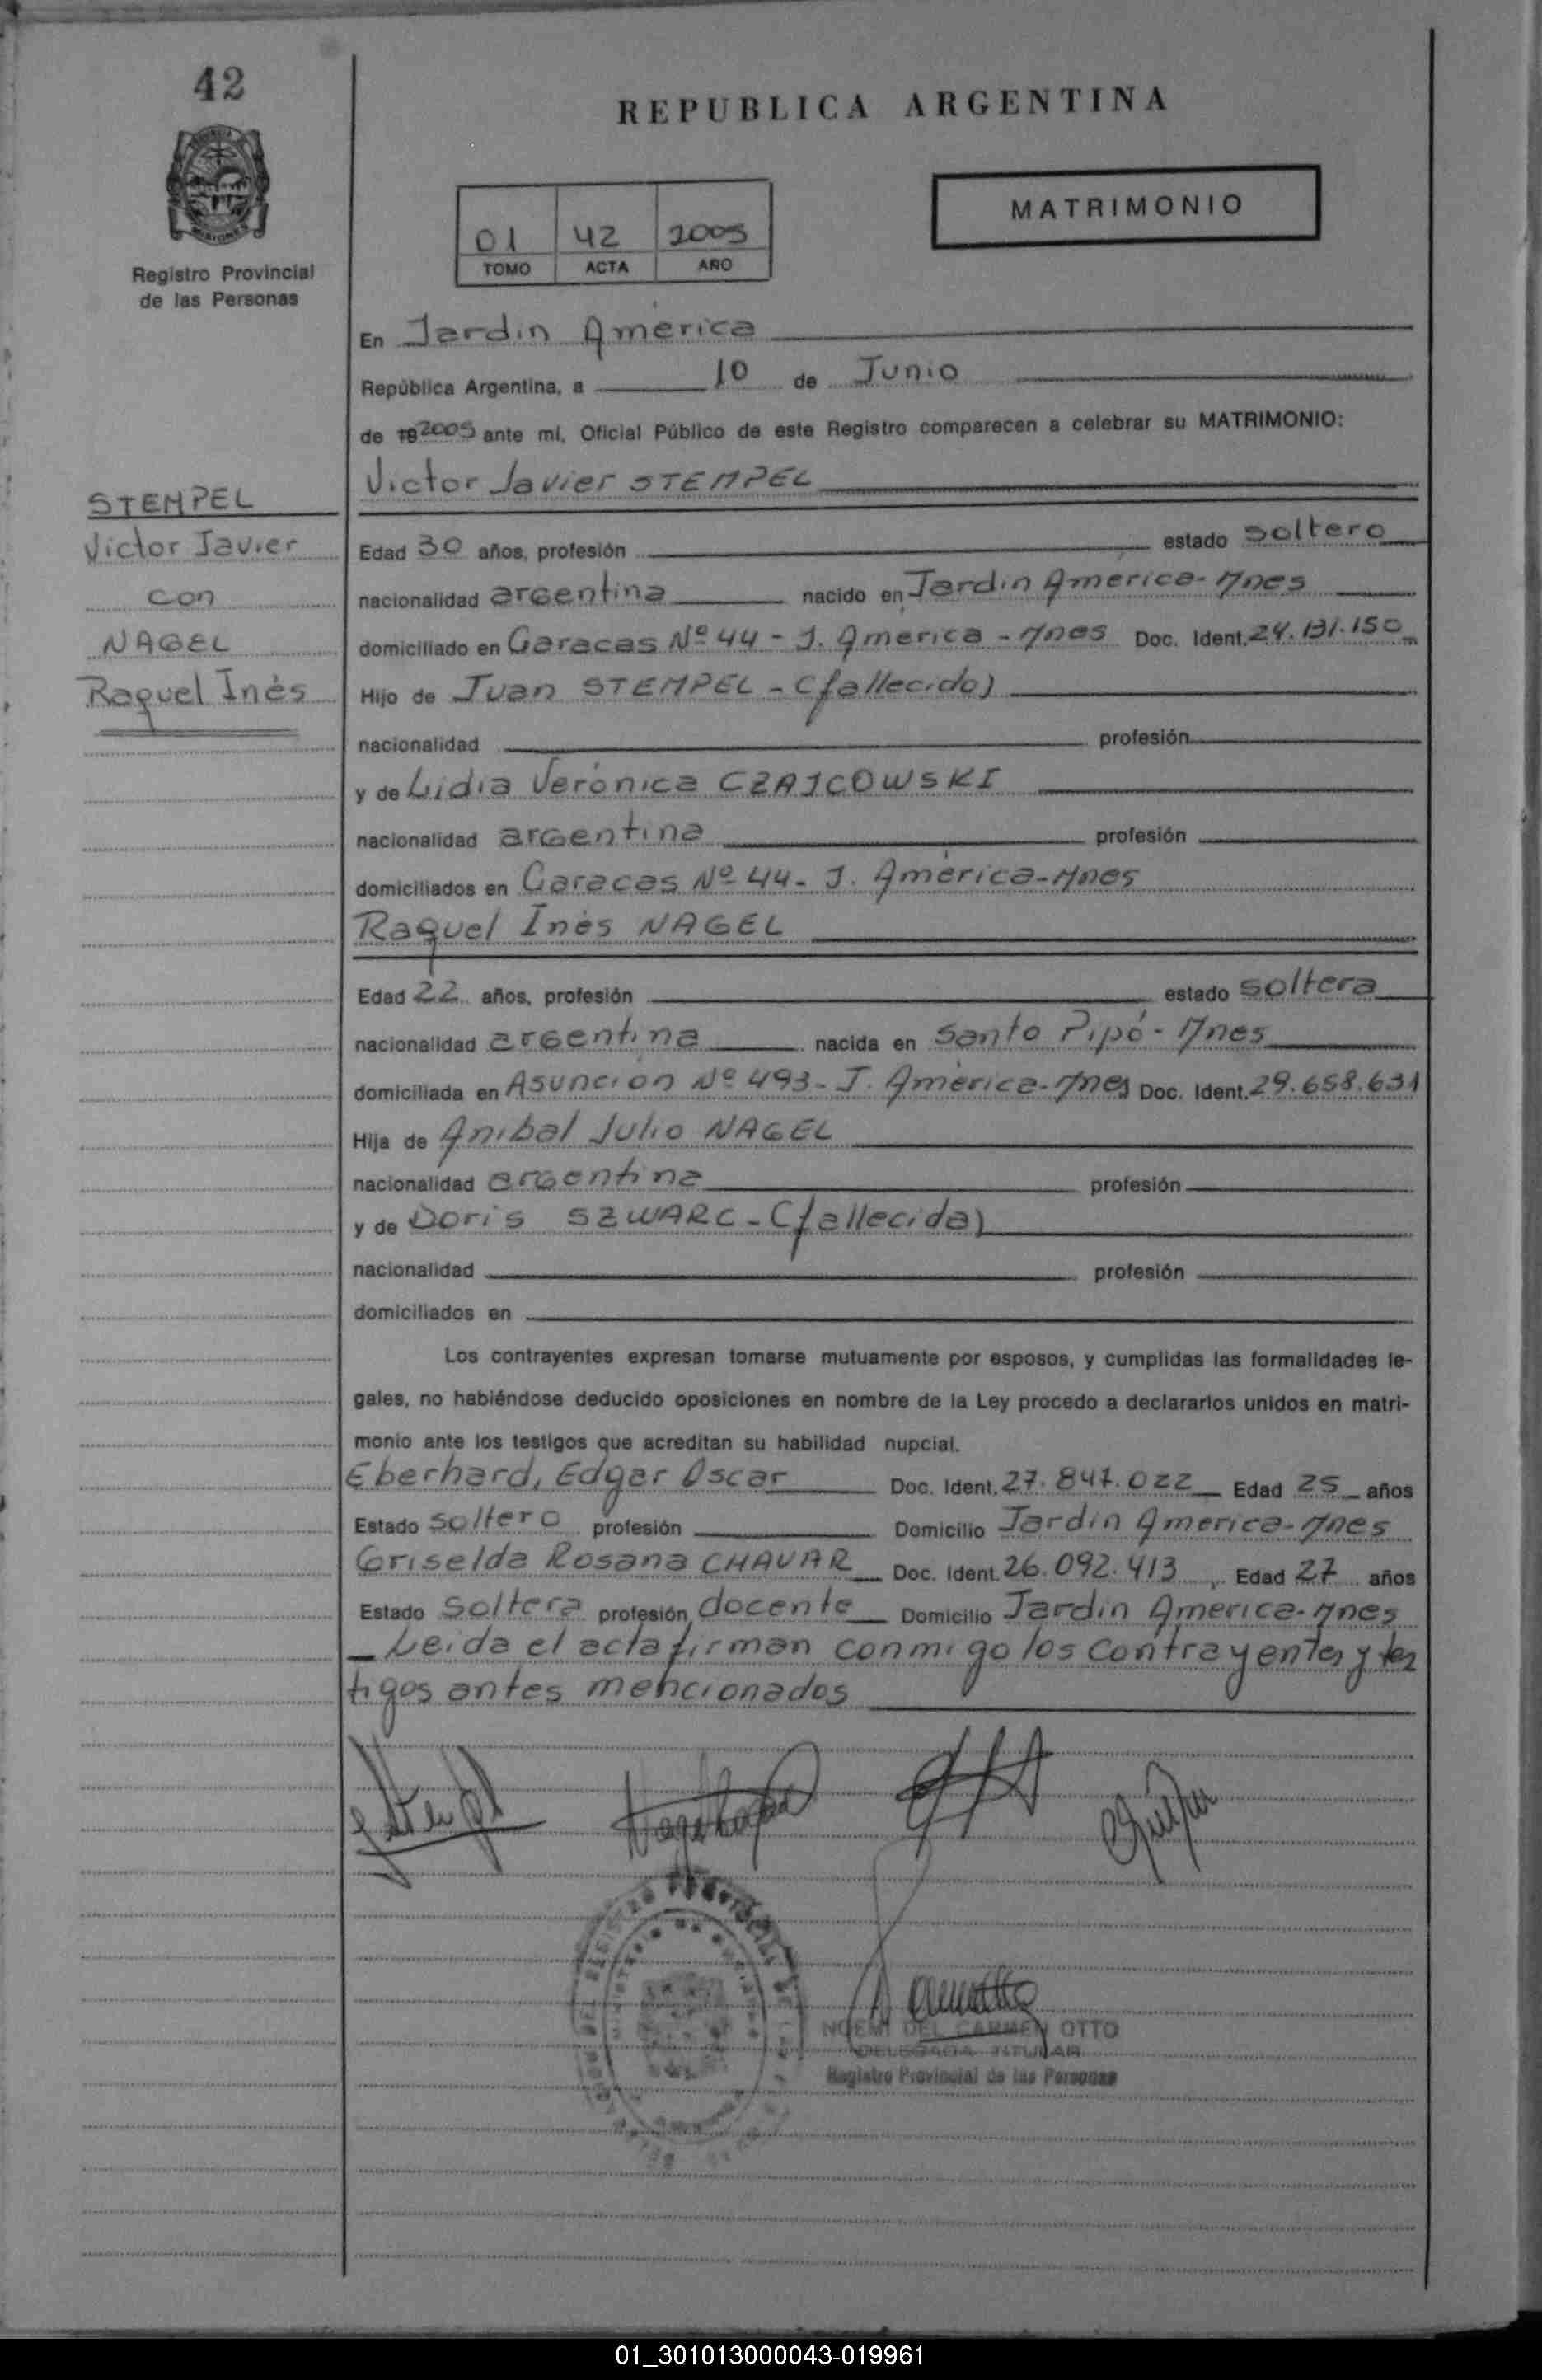 42
REPUBLICA ARGENTINA
MATRIMONIO
01 42 2005
TOMO ACTA AÑO
MISIONES
Registro Provincial
de las Personas
En Jardin América
República Argentina, a 10 de Junio
de 19 2005 ante mí, Oficial Público de este Registro comparecen a celebrar su MATRIMONIO:
Victor Javier STEMPEL
STEMPEL
Victor Javier
con
NAGEL
Raquel Inés
Edad 30 años, profesión estado soltero
nacionalidad argentina nacido en Jardin America - Mnes
domiciliado en Caracas Nº 44 - J. America - Mnes Doc. Ident. 24.131.150
Hijo de Juan STEMPEL - (fallecido)
nacionalidad profesión
y de Lidia Verónica CZAJCOWSKI
nacionalidad argentina profesión
domiciliados en Caracas Nº 44 - J. América - Mnes
Raquel Inés NAGEL
Edad 22 años, profesión estado soltera
nacionalidad argentina nacida en Santo Pipó - Mnes
domiciliada en Asunción Nº 493 - J. América - Mnes Doc. Ident. 29.658.631
Hija de Anibal Julio NAGEL
nacionalidad argentina profesión
y de Doris SZWARC - (fallecida)
nacionalidad profesión
domiciliados en
Los contrayentes expresan tomarse mutuamente por esposos, y cumplidas las formalidades le-
gales, no habiéndose deducido oposiciones en nombre de la Ley procedo a declararlos unidos en matri-
monio ante los testigos que acreditan su habilidad nupcial.
Eberhard, Edgar Oscar Doc. Ident. 27.847.022 Edad 25 años
Estado soltero profesión Domicilio Jardin America - Mnes
Griselda Rosana CHAVAR Doc. Ident. 26.092.413, Edad 27 años
Estado soltera profesión docente Domicilio Jardin America - Mnes
- Leida el acta firman conmigo los contrayentes y tes
tigos antes mencionados
NOEMI DEL CARMEN OTTO
DELEGADA TITULAR
Registro Provincial de las Personas
01_301013000043-019961